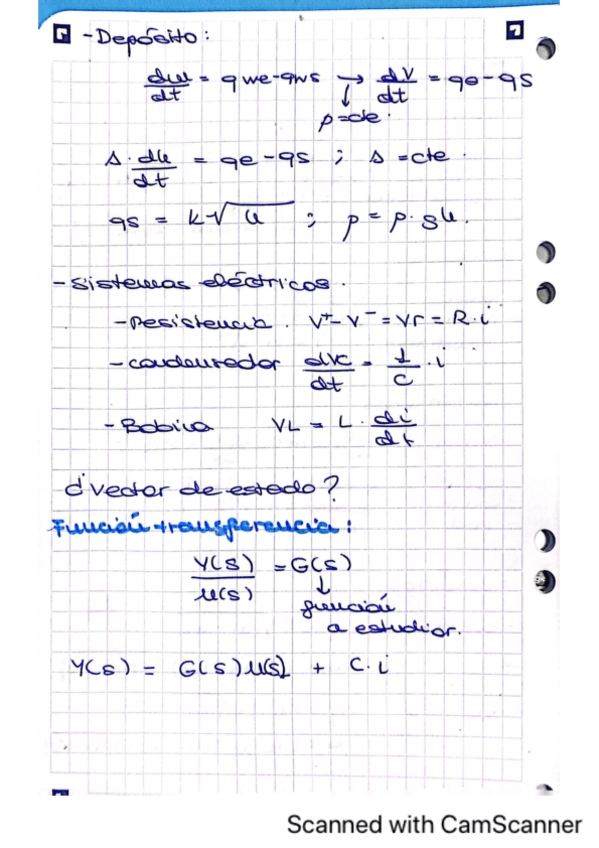 - Depósito:
dw/dt = qwe - qws → dV/dt = qe - qs
↓
ρ = cte.
A · dh/dt = qe - qs ; A = cte.
qs = k√h ; p = ρ·gh.
- Sistemas eléctricos.
- Resistencia. V⁺ - V⁻ = Vr = R·i
- condensador dVc/dt = 1/C · i
- Bobina VL = L · di/dt
¿Vector de estado?
Función transferencia:
Y(s)/U(s) = G(s)
↓
función
a estudiar.
Y(s) = G(s)U(s) + C.i
Scanned with CamScanner